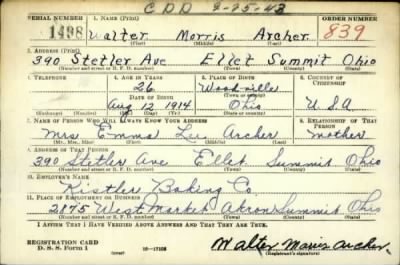 CDD 2-25-43
SERIAL NUMBER 1. NAME (Print) ORDER NUMBER
1498 Walter Morris Archer 839
(First) (Middle) (Last)
2. ADDRESS (Print)
390 Stetler Ave Ellet Summit Ohio
(Number and street or R. F. D. number) (Town) (County) (State)
3. TELEPHONE 4. AGE IN YEARS 5. PLACE OF BIRTH 6. COUNTRY OF CITIZENSHIP
26 Woodville
(Town or county)
DATE OF BIRTH
Aug 12 1914 Ohio U S A
(Exchange) (Number) (Mo.) (Day) (Yr.) (State or country)
7. NAME OF PERSON WHO WILL ALWAYS KNOW YOUR ADDRESS 8. RELATIONSHIP OF THAT PERSON
Mrs Emma Lu Archer Mother
(Mr., Mrs., Miss) (First) (Middle) (Last)
9. ADDRESS OF THAT PERSON
390 Stetler Ave Ellet Summit Ohio
(Number and street or R. F. D. number) (Town) (County) (State)
10. EMPLOYER'S NAME
Kistler Baking Co.
11. PLACE OF EMPLOYMENT OR BUSINESS
2175 West Market Akron Summit Ohio
(Number and street or R. F. D. number) (Town) (County) (State)
I AFFIRM THAT I HAVE VERIFIED ABOVE ANSWERS AND THAT THEY ARE TRUE.
REGISTRATION CARD
D. S. S. Form 1 (over) 16-17105
Walter Morris Archer
(Registrant's signature)